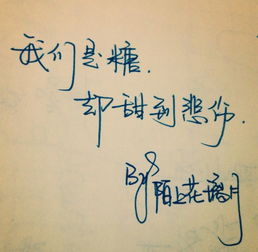 我们是糖.
却甜到悲伤.
By 陌上花